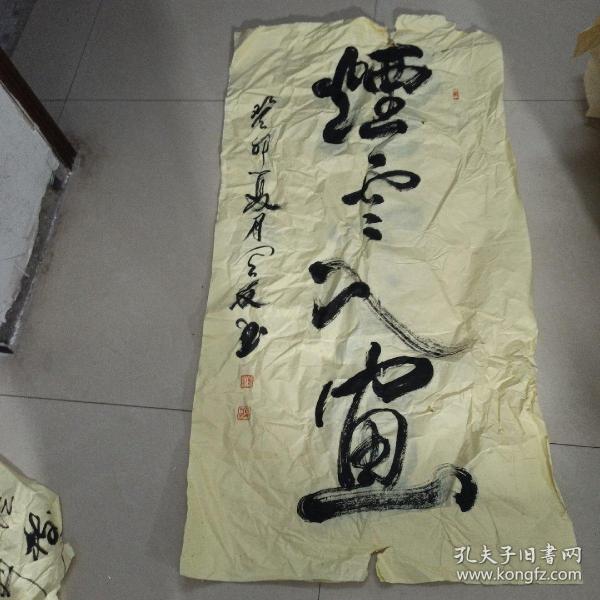 煙雲入畫
癸卯夏月書
孔夫子旧书网
www.kongfz.com